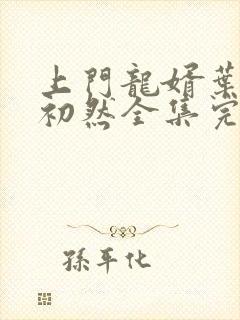 上門龍婿葉
初然全集完
孫平化